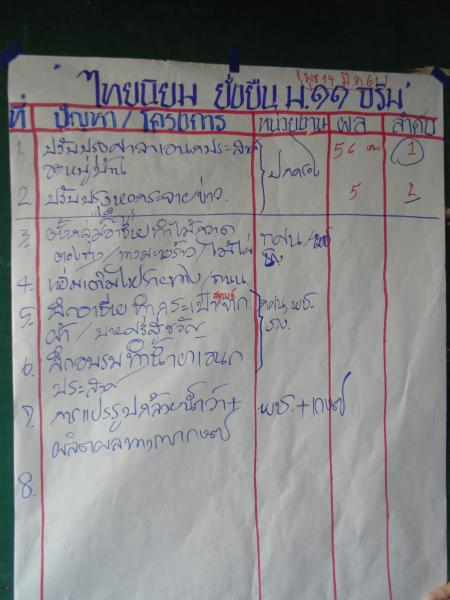 พุธ 14 มี.ค. 61
ไทยนิยม ยั่งยืน ม.๑๑
ที่ ปัญหา/โครงการ หน่วยงาน ผล ลำดับ
1. ปรับปรุงศาลาเอนกประสงค์ ปกครอง 54 1
หมู่บ้าน
2. ปรับปรุงหอกระจายข่าว 5 2
3. ตั้งกลุ่มอาชีพทำไม้กวาด กศน/
ทางมะพร้าว/
4. เพิ่มเติมไฟรายทาง/ถนน
5. ฝึกอาชีพทำกระเป๋าจาก กศน, พช.
ผ้า/บายศรีสู่ขวัญ
6. ฝึกอบรมทำน้ำยาเอนก
ประสงค์
7. การแปรรูปกล้วยน้ำว้า+ พช.+เกษตร
ผลิตผลทางการเกษตร
8.